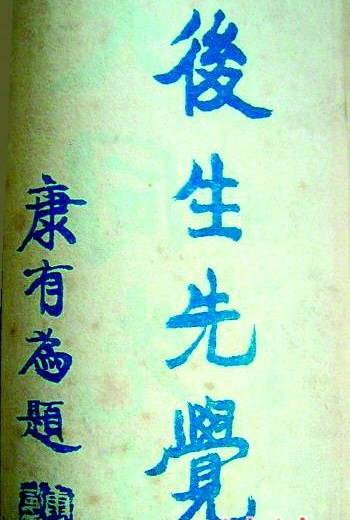 後生先覺
康有為題